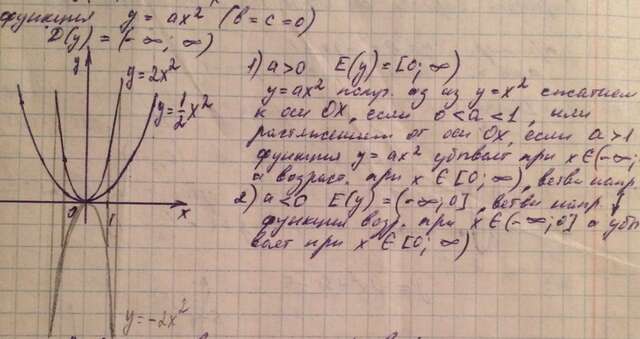 функция y = ax² (b = c = 0)
D(y) = (-∞; ∞)
y
y = 2x²
y = ½x²
0
1
x
y = -2x²
1) a>0 E(y) = [0; ∞)
y = ax² получ. из y = x² сжатием
к оси OX, если 0 < a < 1, или
растяжением от оси OX, если a > 1
функция y = ax² убывает при x ∈ (-∞;
а возраст. при x ∈ [0; ∞), ветви напр
2) a < 0 E(y) = (-∞; 0], ветви напр. ↓
функция возр. при x ∈ (-∞; 0] а убы
вает при x ∈ [0; ∞)